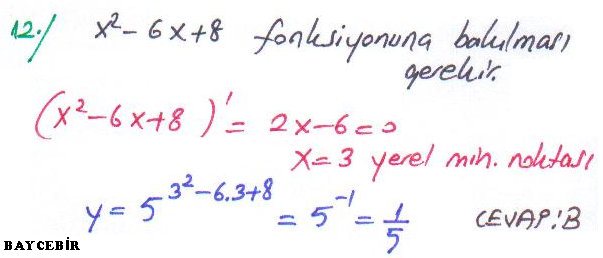 12./ x² - 6x + 8 fonksiyonuna bakılması
gerekir.
(x² - 6x + 8)' = 2x - 6 = 0
x = 3 yerel min. noktası
y = 5^(3² - 6.3 + 8) = 5⁻¹ = 1/5 CEVAP: B
BAYCEBİR